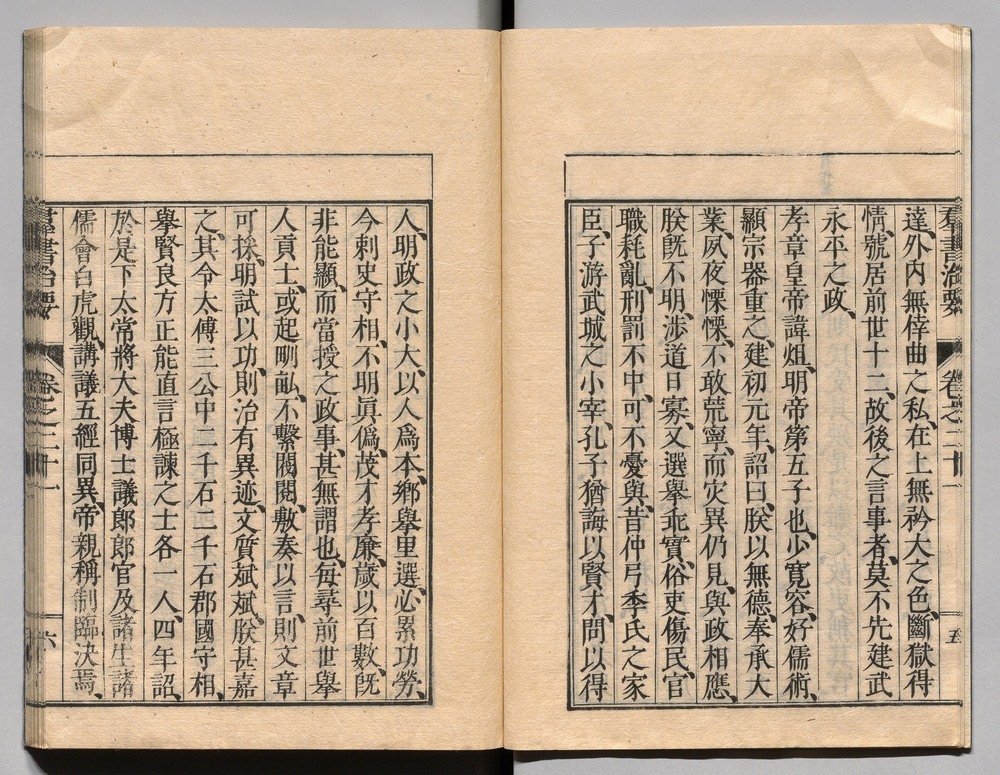 羣書治要 卷之二十一 五
達、外內無倖曲之私、在上無矜大之色、斷獄得
情、號居前世十二、故後之言事者、莫不先建武
永平之政、
孝章皇帝諱炟、明帝第五子也、少寬容、好儒術、
顯宗器重之、建初元年、詔曰、朕以無德、奉承大
業、夙夜慄慄、不敢荒寧、而灾異仍見、與政相應、
朕旣不明、涉道日寡、又選舉乖實、俗吏傷民、官
職耗亂、刑罰不中、可不憂與、昔仲弓季氏之家
臣、子游武城之小宰、孔子猶誨以賢才、問以得
人、明政之小大、以人爲本、鄉舉里選、必累功勞、
今刺史守相、不明眞僞、茂才孝廉、歲以百數、旣
非能顯、而當授之政事、甚無謂也、每尋前世舉
人貢士、或起甽畝、不繫閥閱、敷奏以言、則文章
可採、明試以功、則治有異迹、文質斌斌、朕甚嘉
之、其令太傅三公中二千石二千石郡國守相、
舉賢良方正能直言極諫之士各一人、四年詔、
於是下太常將大夫博士議郎郎官及諸生諸
儒會白虎觀、講議五經同異、帝親稱制臨決焉、
羣書治要 卷之二十一 六